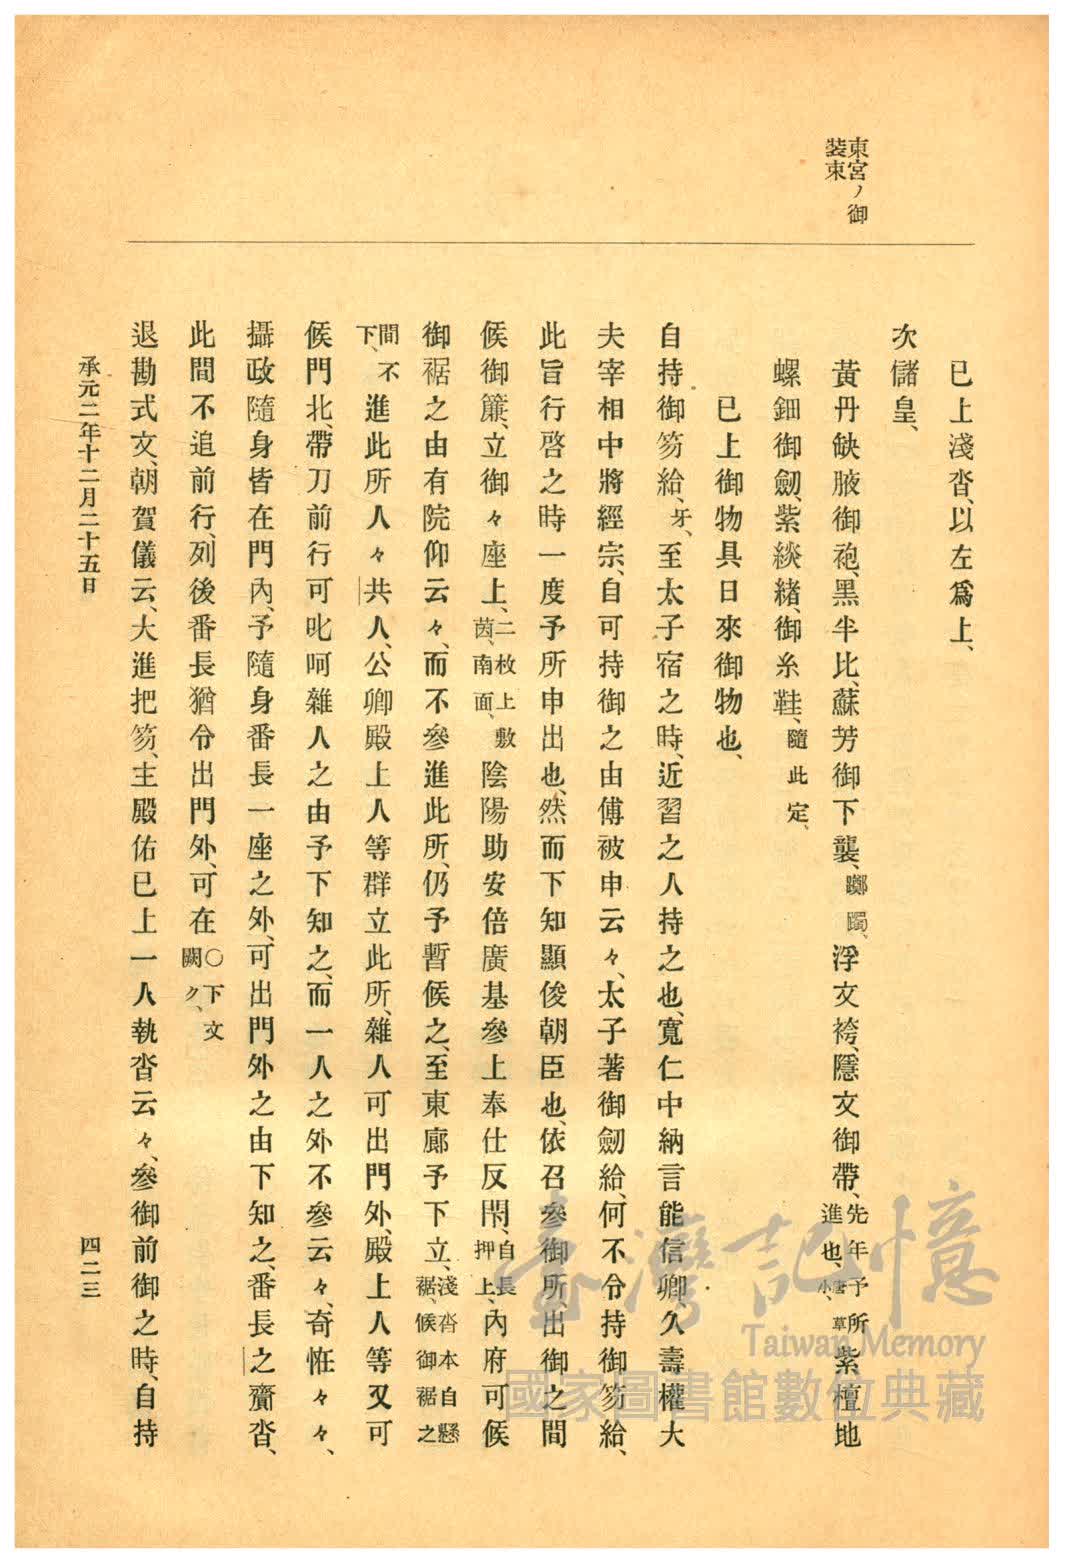 東宮ノ御
装束
已上淺沓、以左爲上、
次儲皇、
黃丹缺腋御袍、黑半比、蘇芳御下襲、躑躅、浮文袴、隱文御帶、先年予所進也、唐草小、紫檀地
螺鈿御劒、紫綟緒、御糸鞋、隨此定、
已上御物具日來御物也、
自持御笏給、牙、至太子宿之時、近習之人持之也、寬仁中納言能信卿、久壽權大
夫宰相中將經宗、自可持御之由傅被申云々、太子著御劒給、何不令持御笏給、
此旨行啓之時一度予所申出也、然而下知顯俊朝臣也、依召參御所、出御之間
候御簾、立御々座上、二枚上敷茵、南面、陰陽助安倍廣基參上奉仕反閇、自長押上、內府可候
御裾之由有院仰云々、而不參進此所、仍予暫候之、至東廊予下立、淺沓本自懸裾、候御裾之
間不下、進此所人々共人、公卿殿上人等群立此所、雜人可出門外、殿上人等又可
候門北、帶刀前行可叱呵雜人之由予下知之、而一人之外不參云々、奇恠々々、
攝政隨身皆在門內、予隨身番長一座之外、可出門外之由下知之、番長之齎沓、
此間不追前行、列後番長猶令出門外、可在〇下文闕ク、
退勘式文、朝賀儀云、大進把笏、主殿佑已上一人執沓云々、參御前御之時、自持
承元二年十二月二十五日
四二三
臺灣記憶
Taiwan Memory
國家圖書館數位典藏